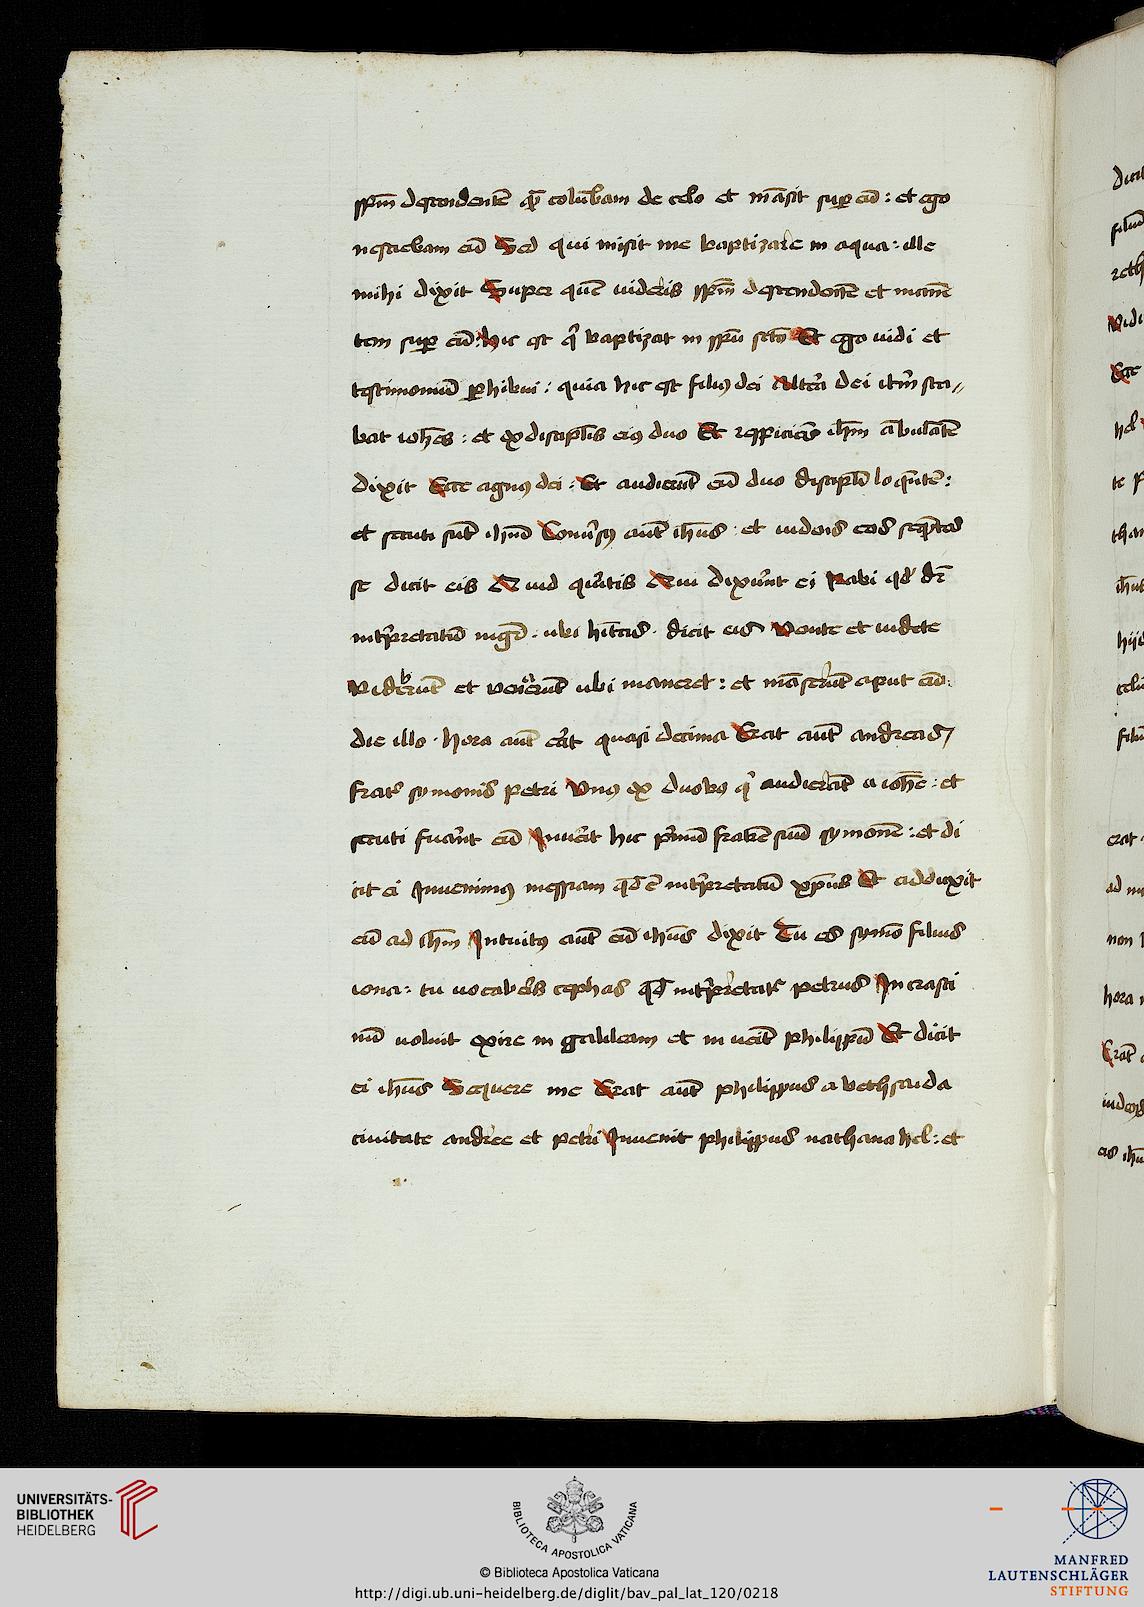 sp̄m descendentē q̄ȝ colūbam de celo et māsit suꝑ eū : et ego
nesciebam eū Sed qui misit me baptizare in aqua : ille
mihi dixit Super quē uideris sp̄m descendentē et manē
tem suꝑ eū : hic est qͥ baptizat in sp̄u scto Et ego uidi et
testimoniū ꝑhibui : quia hic est filiꝰ dei Altera dei itm̄ sta⸗
bat ioh̄es : et ex discipl̄is eiꝰ duo Et respiciens ih̄m ābulātē
dixit Ecce agnus dei : Et audierūt eū duo discipl̄i loquētē :
et secuti sūt ihm̄ Conuersꝰ aut̄ ih̄us · et uidens eos sequētes
se dicit eis Quid queritis Qui dixerūt ei Rabi qd̄ dr̄
interpretatū mgr̄ · ubi hītas · dicit eis Venite et uidete
Viderūt et venierūt ubi maneret : et māserūt aput eū
die illo · hora aut̄ erat quasi decima Erat aut̄ andreas
frater symonis petri Vnus ex duobꝰ qͥ audierāt a ioh̄e : et
secuti fuerāt eū Inuenit hic pͥmū fratrē suū symonē : et di
cit ei Inuenimꝰ messiam qd̄ ē interpretatū xp̄us Et adduxit
eū ad ih̄m Intuitꝰ aut̄ eū ih̄us dixit Tu es symō filius
iona : tu vocaberis cephas qd̄ interpretatur petrus In crasti
nū voluit exire in galileam et inuenit philippū Et dicit
ei ih̄us Sequere me Erat aut̄ philippus a bethsaida
ciuitate andree et petri Inuenit philippus nathanahel : et
UNIVERSITÄTS-
BIBLIOTHEK
HEIDELBERG
BIBLIOTECA APOSTOLICA VATICANA
© Biblioteca Apostolica Vaticana
http://digi.ub.uni-heidelberg.de/diglit/bav_pal_lat_120/0218
MANFRED
LAUTENSCHLÄGER
STIFTUNG